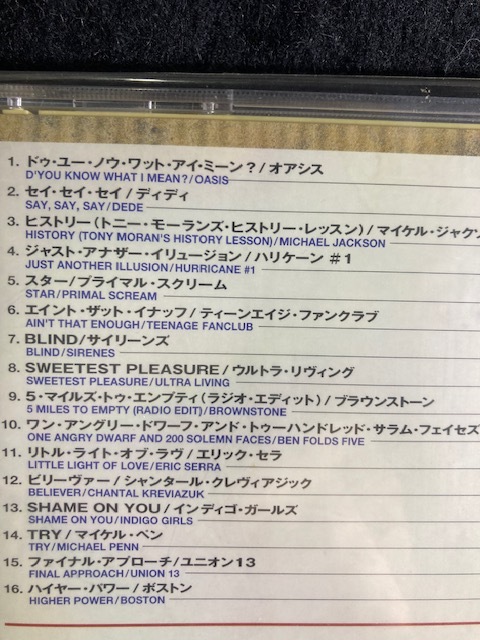 1. ドゥ・ユー・ノウ・ワット・アイ・ミーン?/オアシス
D'YOU KNOW WHAT I MEAN?/OASIS
2. セイ・セイ・セイ/ディディ
SAY, SAY, SAY/DEDE
3. ヒストリー(トニー・モーランズ・ヒストリー・レッスン)/マイケル・ジャクソ
HISTORY (TONY MORAN'S HISTORY LESSON)/MICHAEL JACKSON
4. ジャスト・アナザー・イリュージョン/ハリケーン #1
JUST ANOTHER ILLUSION/HURRICANE #1
5. スター/プライマル・スクリーム
STAR/PRIMAL SCREAM
6. エイント・ザット・イナッフ/ティーンエイジ・ファンクラブ
AIN'T THAT ENOUGH/TEENAGE FANCLUB
7. BLIND/サイリーンズ
BLIND/SIRENES
8. SWEETEST PLEASURE/ウルトラ・リヴィング
SWEETEST PLEASURE/ULTRA LIVING
9. 5・マイルズ・トゥ・エンプティ(ラジオ・エディット)/ブラウンストーン
5 MILES TO EMPTY (RADIO EDIT)/BROWNSTONE
10. ワン・アングリー・ドワーフ・アンド・トゥーハンドレッド・サラム・フェイセズ
ONE ANGRY DWARF AND 200 SOLEMN FACES/BEN FOLDS FIVE
11. リトル・ライト・オブ・ラヴ/エリック・セラ
LITTLE LIGHT OF LOVE/ERIC SERRA
12. ビリーヴァー/シャンタール・クレヴィアジック
BELIEVER/CHANTAL KREVIAZUK
13. SHAME ON YOU/インディゴ・ガールズ
SHAME ON YOU/INDIGO GIRLS
14. TRY/マイケル・ペン
TRY/MICHAEL PENN
15. ファイナル・アプローチ/ユニオン13
FINAL APPROACH/UNION 13
16. ハイヤー・パワー/ボストン
HIGHER POWER/BOSTON